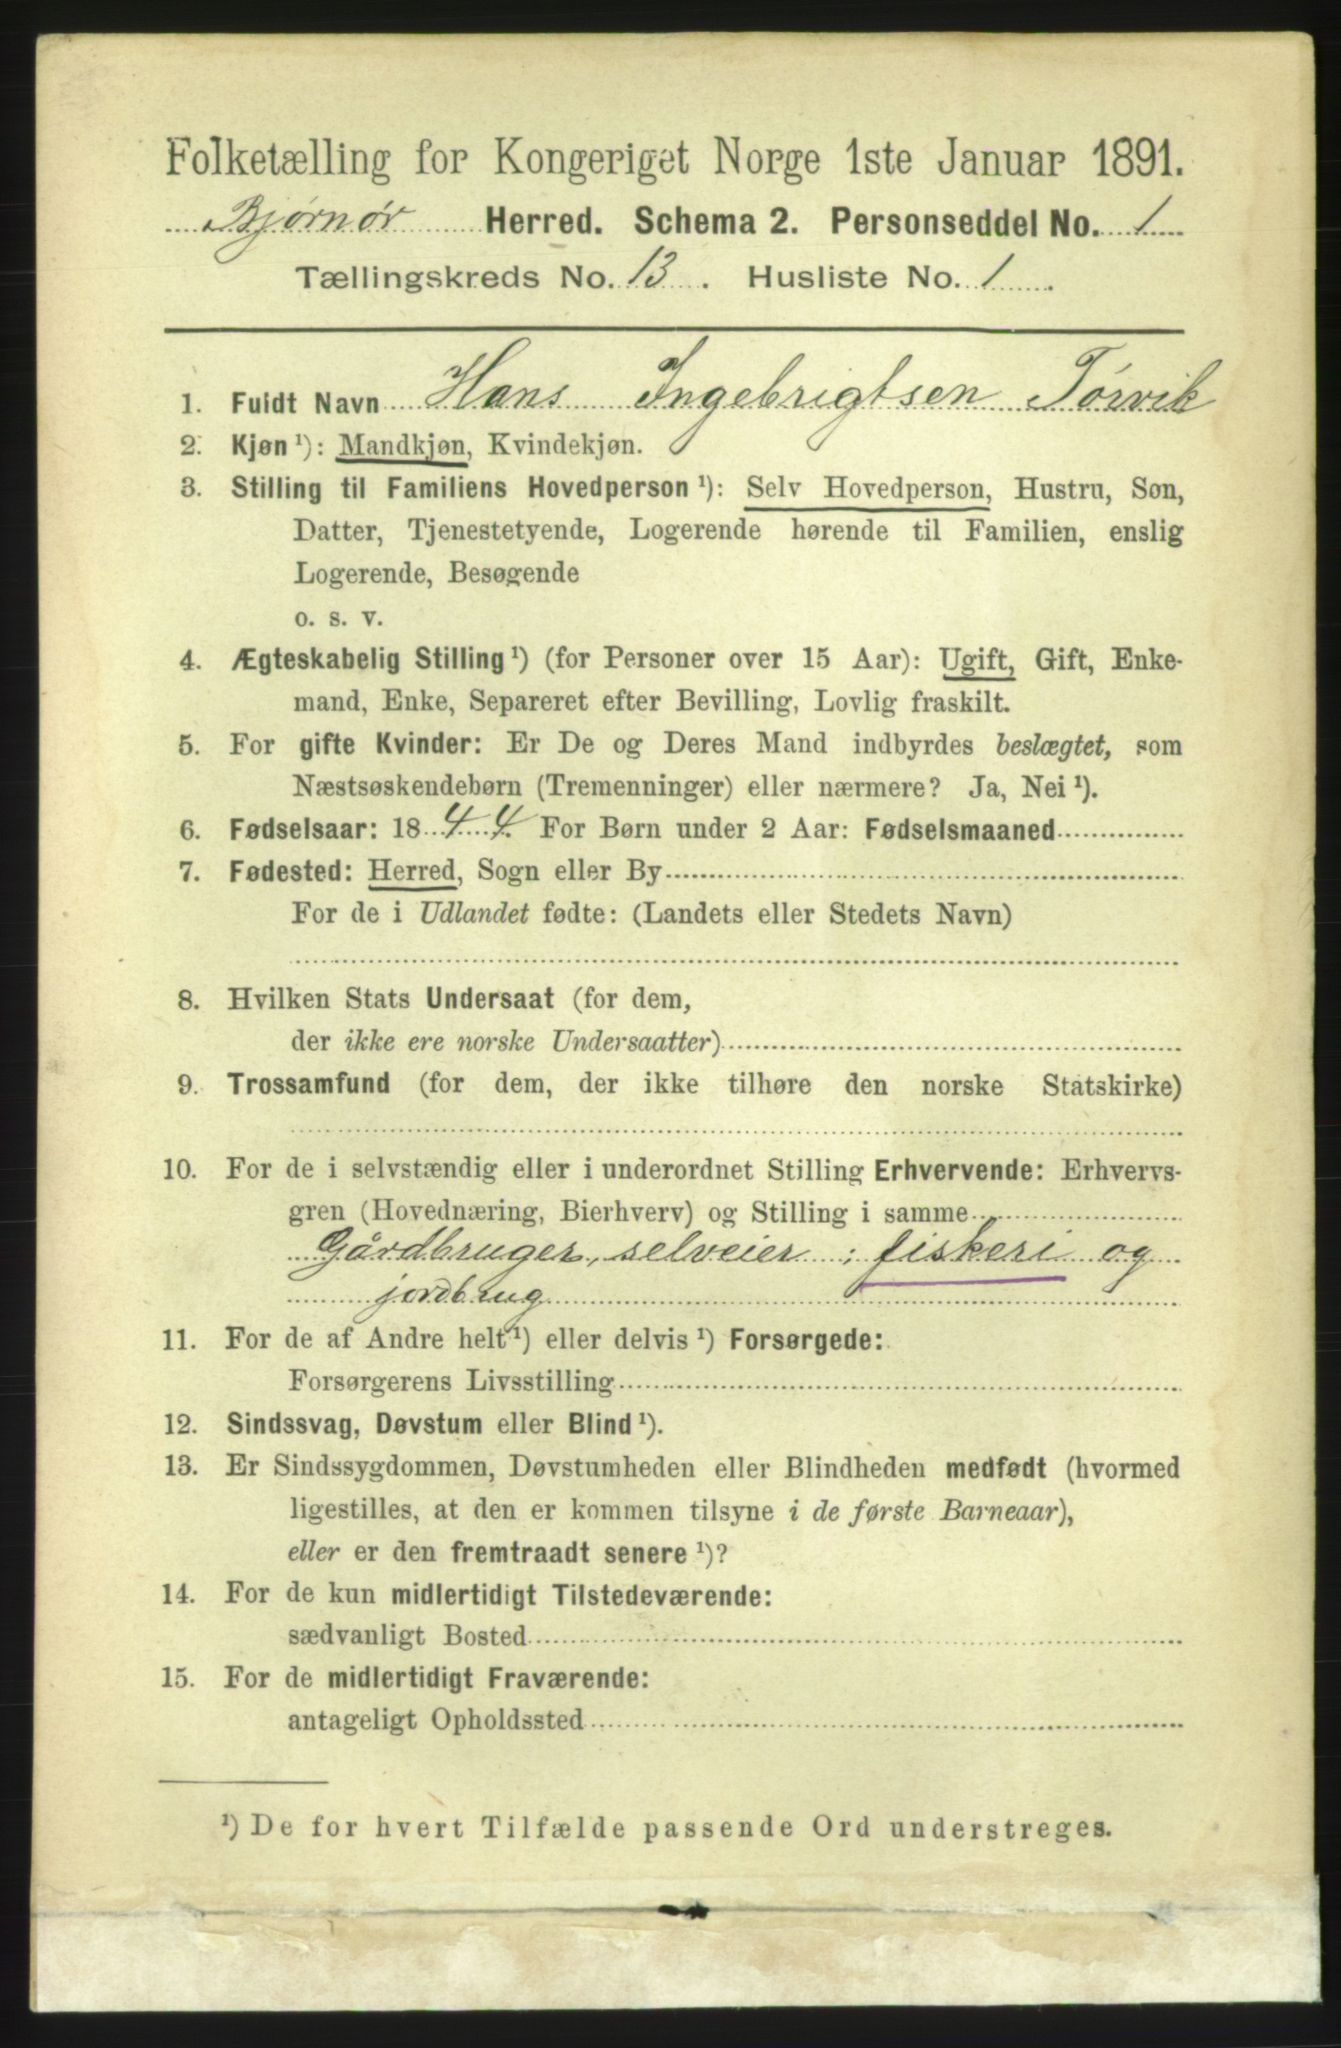 Folketælling for Kongeriget Norge 1ste Januar 1891.
Bjørnør Herred. Schema 2. Personseddel No. 1
Tællingskreds No. 13. Husliste No. 1
1. Fuldt Navn Hans Ingebrigtsen Tørvik
2. Kjøn ¹): Mandkjøn, Kvindekjøn.
3. Stilling til Familiens Hovedperson ¹): Selv Hovedperson, Hustru, Søn,
Datter, Tjenestetyende, Logerende hørende til Familien, enslig
Logerende, Besøgende
o. s. v.
4. Ægteskabelig Stilling ¹) (for Personer over 15 Aar): Ugift, Gift, Enke-
mand, Enke, Separeret efter Bevilling, Lovlig fraskilt.
5. For gifte Kvinder: Er De og Deres Mand indbyrdes beslægtet, som
Næstsøskendebørn (Tremenninger) eller nærmere? Ja, Nei ¹).
6. Fødselsaar: 1844. For Børn under 2 Aar: Fødselsmaaned
7. Fødested: Herred, Sogn eller By
For de i Udlandet fødte: (Landets eller Stedets Navn)
8. Hvilken Stats Undersaat (for dem,
der ikke ere norske Undersaatter)
9. Trossamfund (for dem, der ikke tilhøre den norske Statskirke)
10. For de i selvstændig eller i underordnet Stilling Erhvervende: Erhvervs-
gren (Hovednæring, Bierhverv) og Stilling i samme
Gårdbruger, selveier; fiskeri og
jordbrug
11. For de af Andre helt ¹) eller delvis ¹) Forsørgede:
Forsørgerens Livsstilling
12. Sindssvag, Døvstum eller Blind ¹).
13. Er Sindssygdommen, Døvstumheden eller Blindheden medfødt (hvormed
ligestilles, at den er kommen tilsyne i de første Barneaar),
eller er den fremtraadt senere ¹)?
14. For de kun midlertidigt Tilstedeværende:
sædvanligt Bosted
15. For de midlertidigt Fraværende:
antageligt Opholdssted
¹) De for hvert Tilfælde passende Ord understreges.